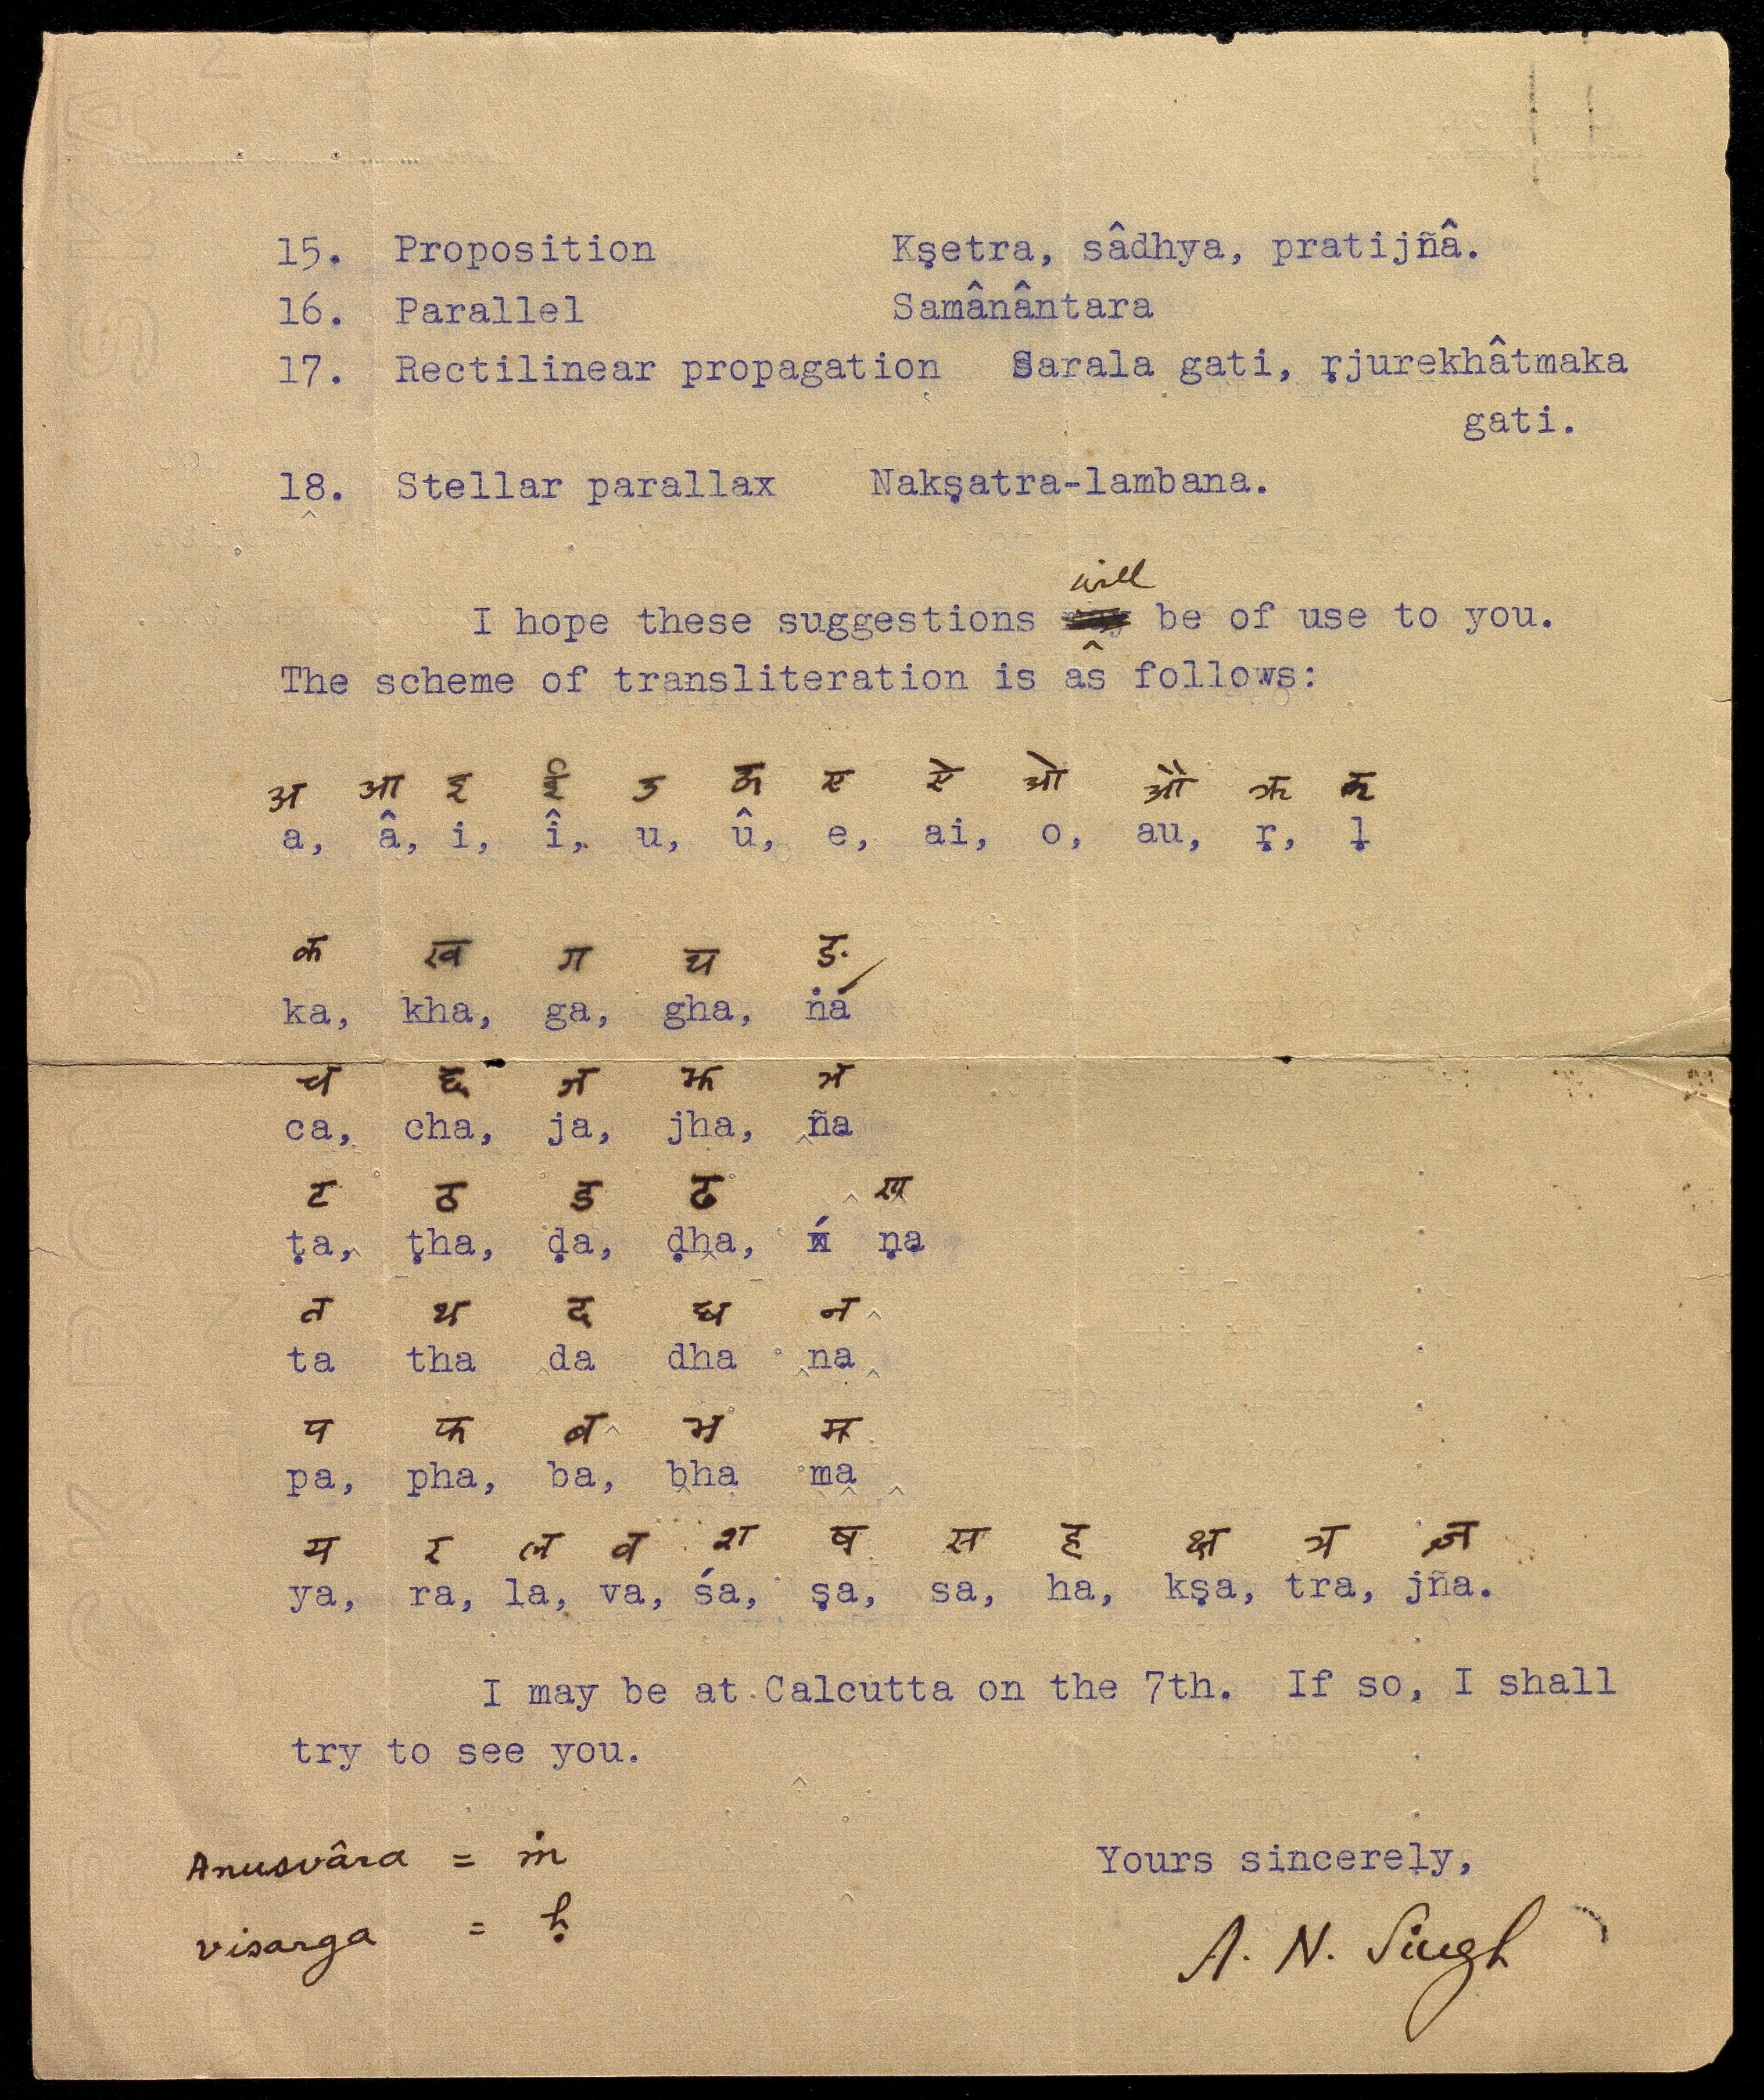 15. Proposition Kṣetra, sâdhya, pratijñâ.
16. Parallel Samânântara
17. Rectilinear propagation Sarala gati, ṛjurekhâtmaka
gati.
18. Stellar parallax Nakṣatra-lambana.
will
I hope these suggestions be of use to you.
The scheme of transliteration is as follows:
अ आ इ ई उ ऊ ए ऐ ओ औ ऋ
a, â, i, î, u, û, e, ai, o, au, ṛ, ḷ
क ख ग घ ङ
ka, kha, ga, gha, ṅa
च छ ज झ ञ
ca, cha, ja, jha, ña
ट ठ ड ढ ण
ṭa, ṭha, ḍa, ḍha, ṇa
त थ द ध न
ta tha da dha na
प फ ब भ म
pa, pha, ba, bha ma
य र ल व श ष स ह क्ष त्र ज्ञ
ya, ra, la, va, śa, ṣa, sa, ha, kṣa, tra, jña.
I may be at Calcutta on the 7th. If so, I shall
try to see you.
Anusvâra = ṁ
visarga = ḥ
Yours sincerely,
A. N. Singh